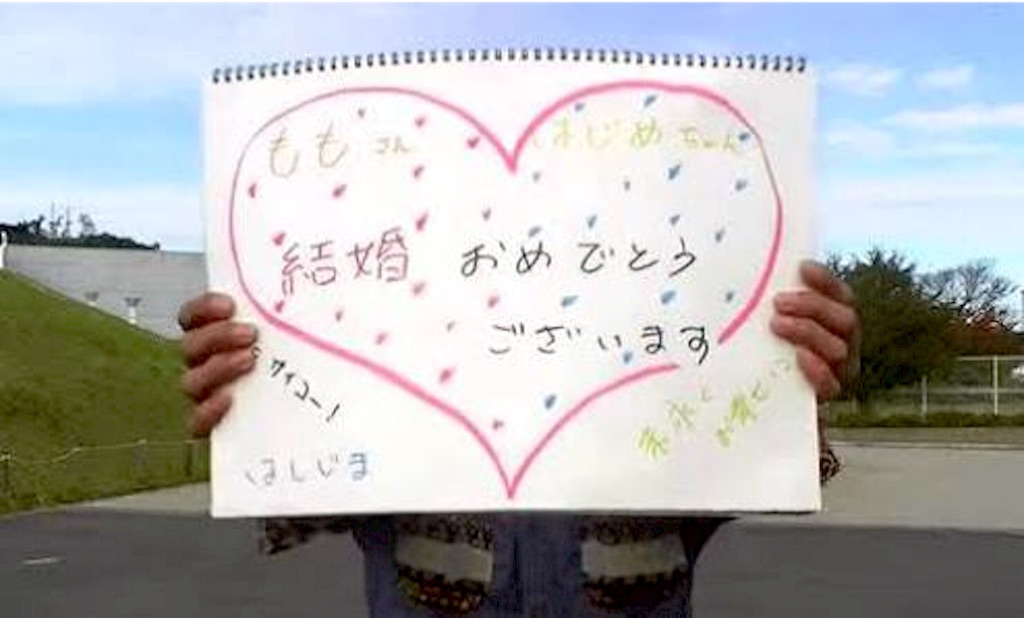 ももさん はじめちゃん
結婚 おめでとう
ございます
サイコー!
末永く
お幸せに
ほしじま